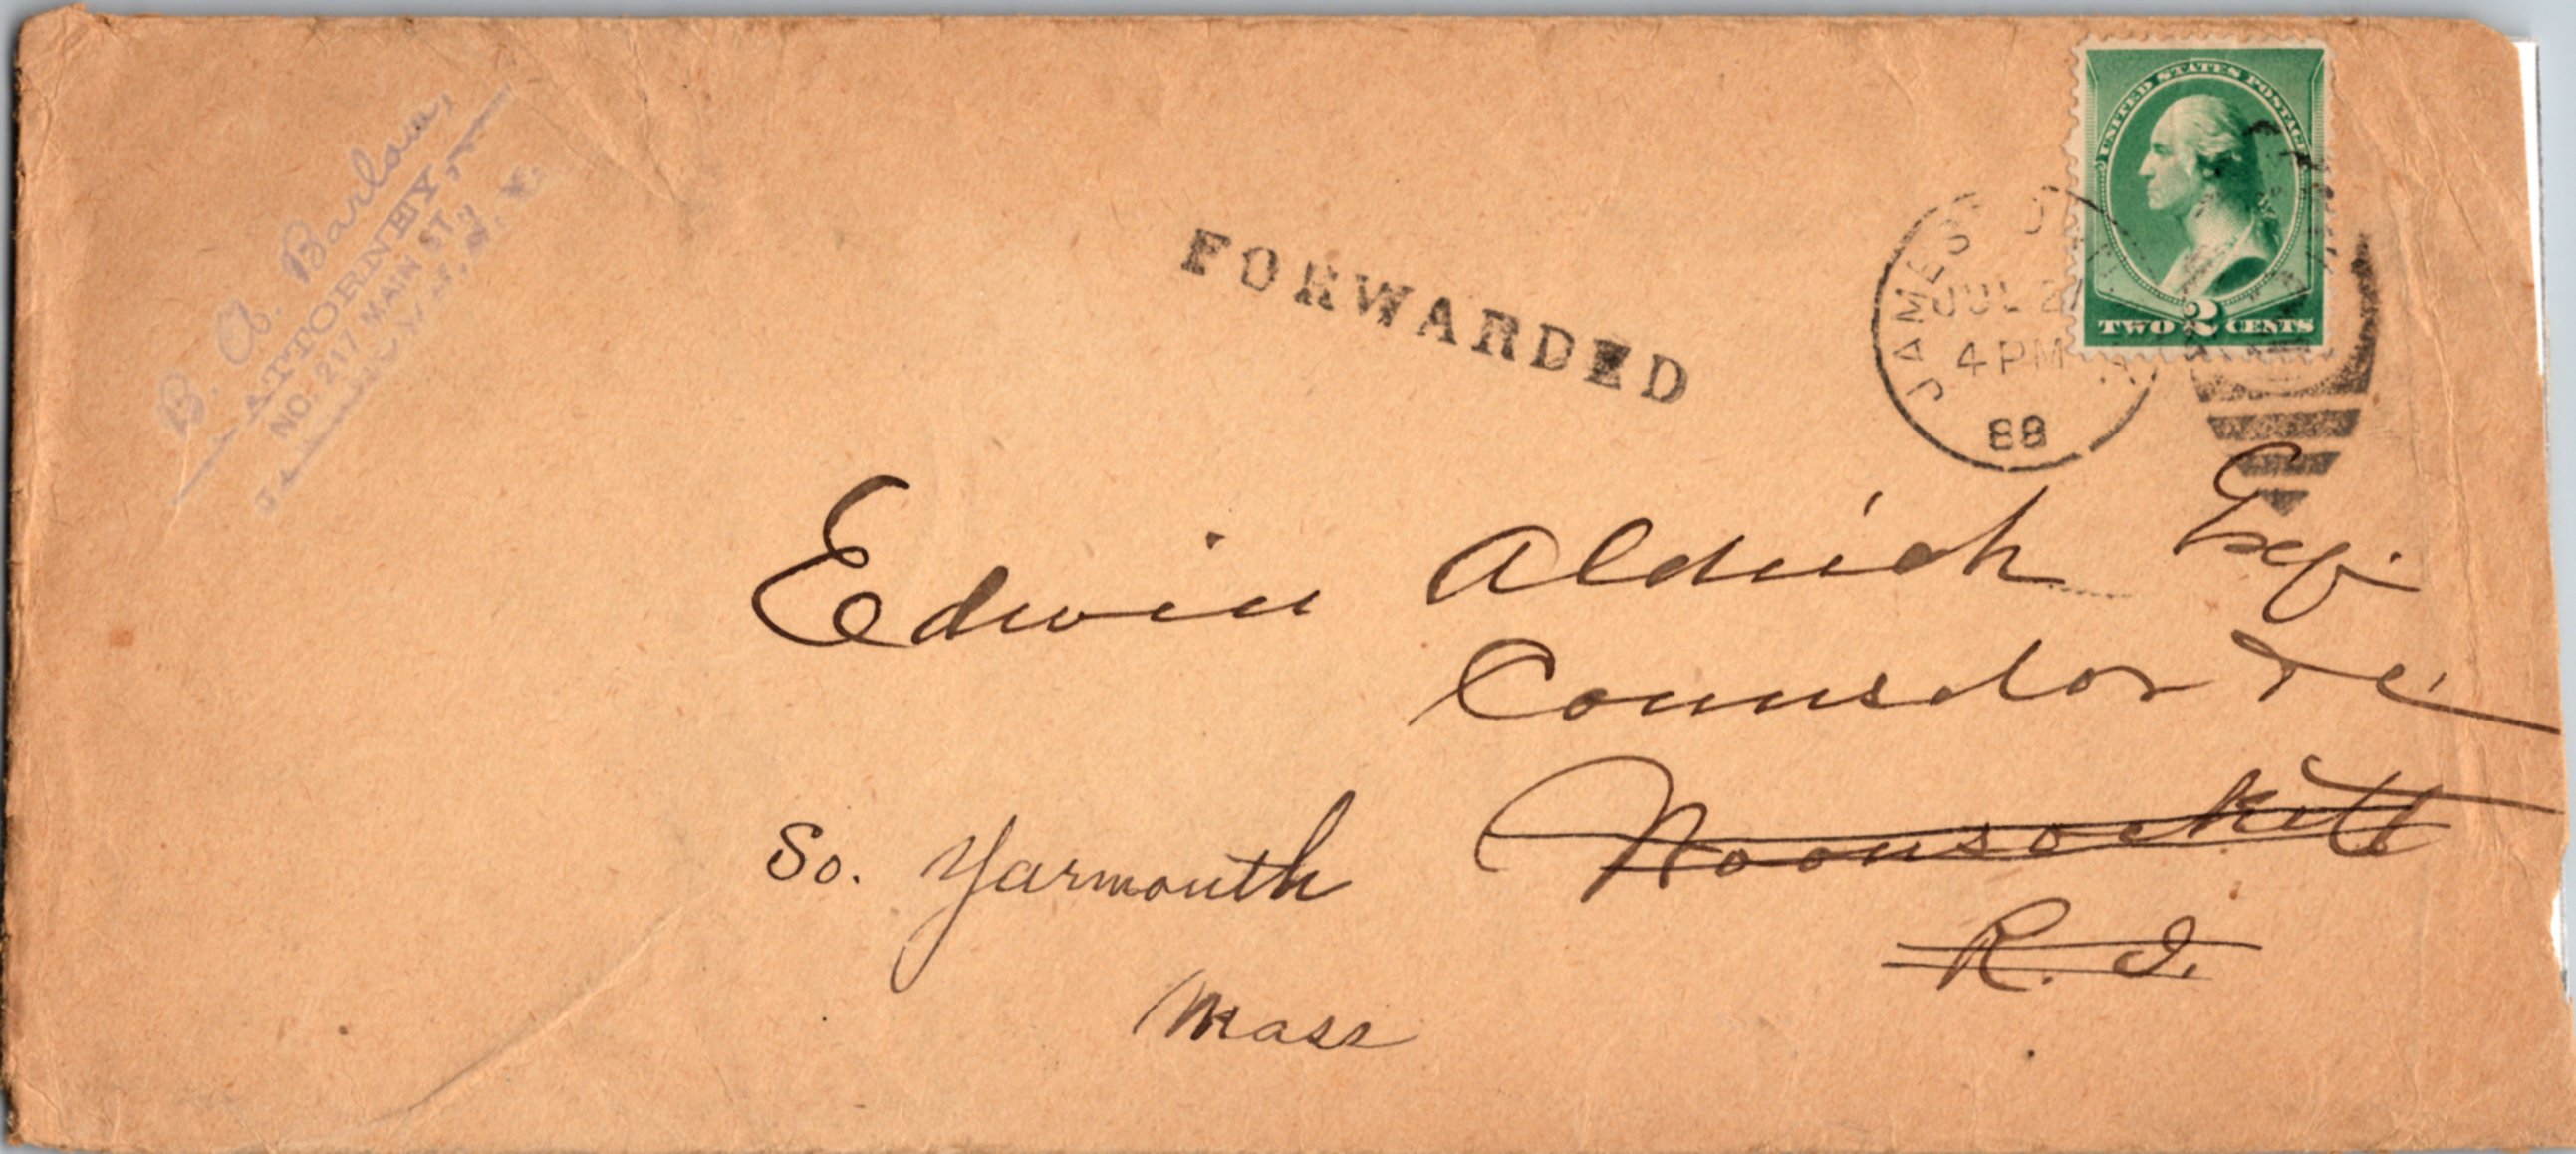 B. A. Barlow,
ATTORNEY,
NO. 217 MAIN ST.,
N. Y.
FORWARDED
JAMESTO
JUL 27
4 PM
88
UNITED STATES POSTAGE
TWO 2 CENTS
Edwin Aldrich Esq.
Counselor &c.
Woonsockett
R. I.
So. Yarmouth
Mass